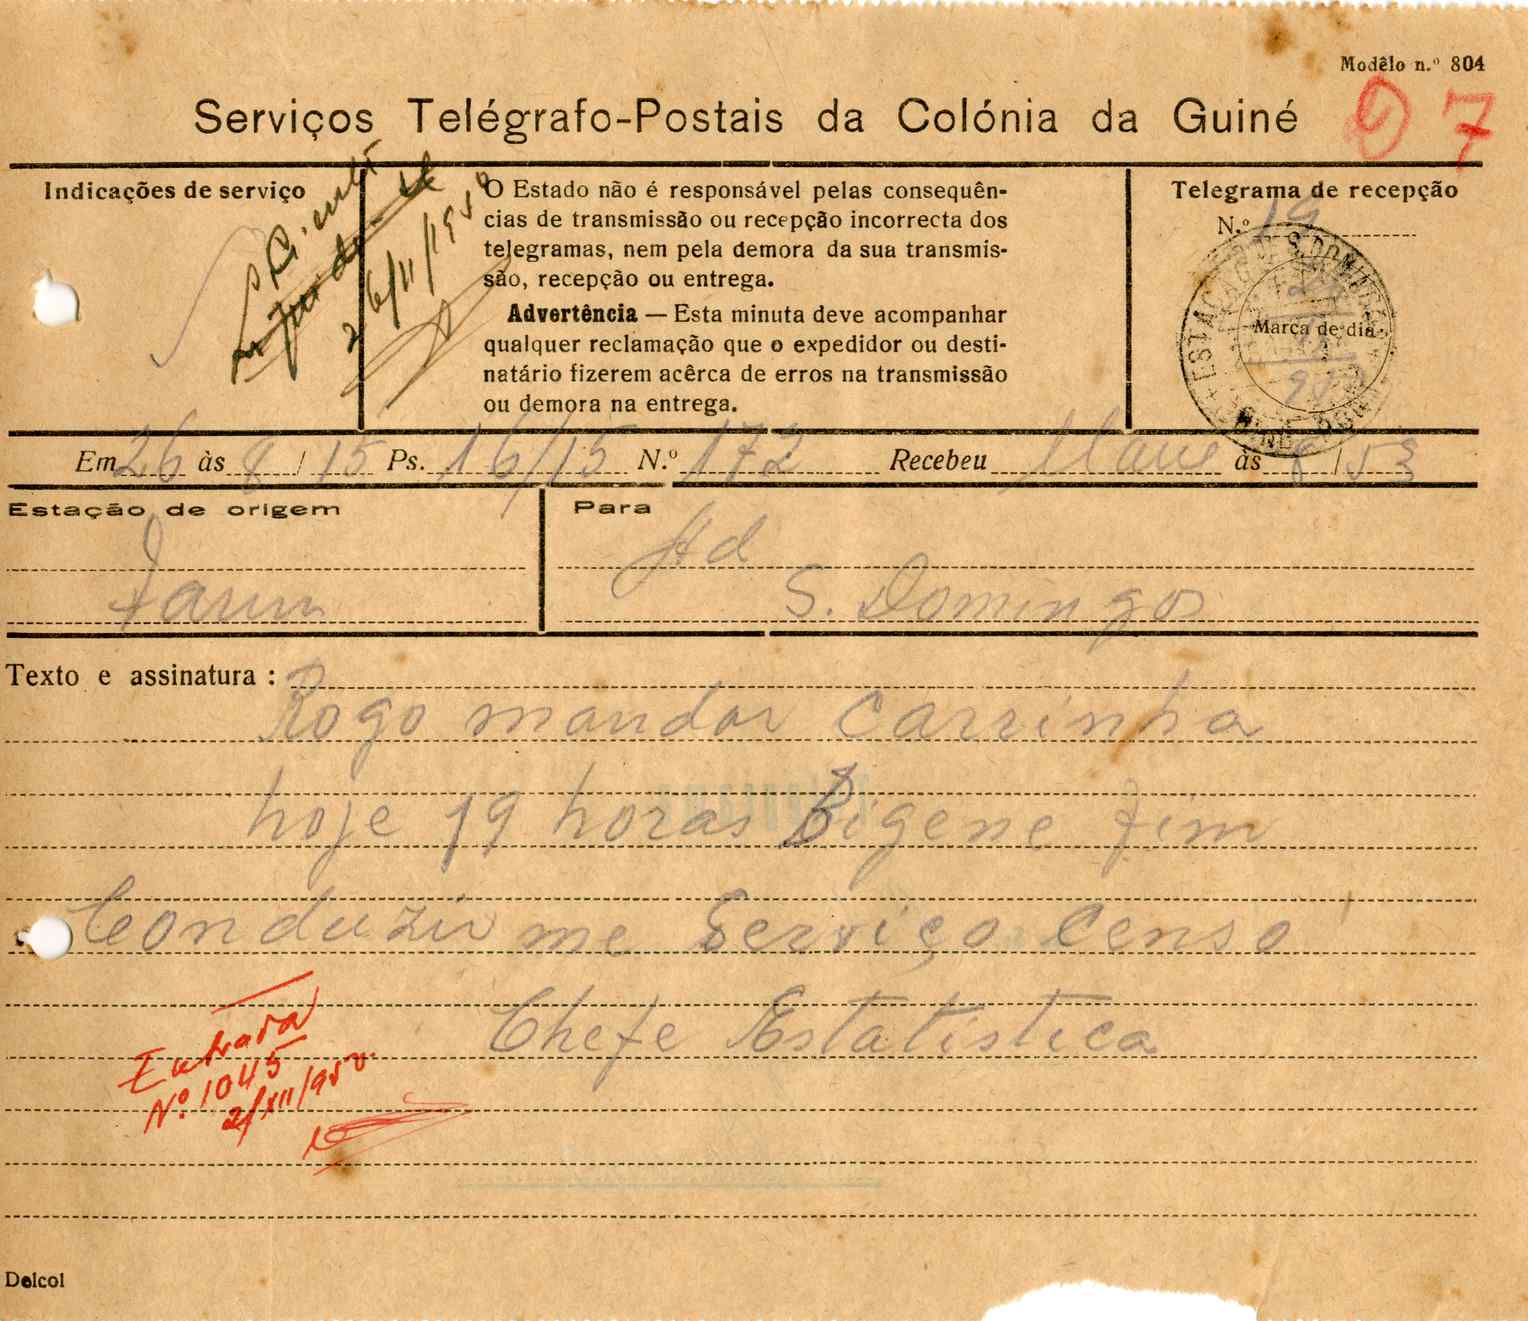 Modêlo n.º 804
Serviços Telégrafo-Postais da Colónia da Guiné
7
Indicações de serviço
26/11/1950
O Estado não é responsável pelas consequên-
cias de transmissão ou recepção incorrecta dos
telegramas, nem pela demora da sua transmis-
são, recepção ou entrega.
Advertência — Esta minuta deve acompanhar
qualquer reclamação que o expedidor ou desti-
natário fizerem acêrca de erros na transmissão
ou demora na entrega.
Telegrama de recepção
N.º 19
ESTAÇÃO S. DOMINGOS
Marca de dia
Em 26 às 8/15 Ps. 16/15 N.º 172 Recebeu às 8/53
Estação de origem
Farim
Para
Ad
S. Domingos
Texto e assinatura:
Rogo mandar carrinha
hoje 19 horas Bigene fim
Conduzir me Serviço censo
Chefe Estatistica
Entrada
Nº 1045
2/XII/950
Delcol